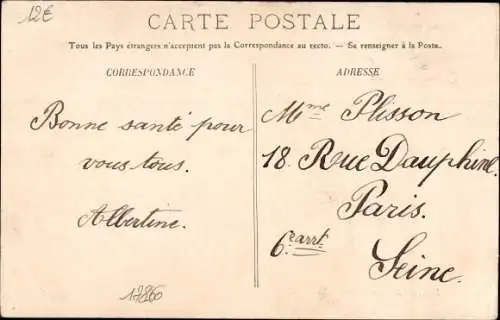 12€
CARTE POSTALE
Tous les Pays étrangers n'acceptent pas la Correspondance au recto. — Se renseigner à la Poste.
CORRESPONDANCE
Bonne santé pour
vous tous.
Albertine.
17860
ADRESSE
Mme Plisson
18. Rue Dauphine.
Paris.
6e arrt.
Seine.